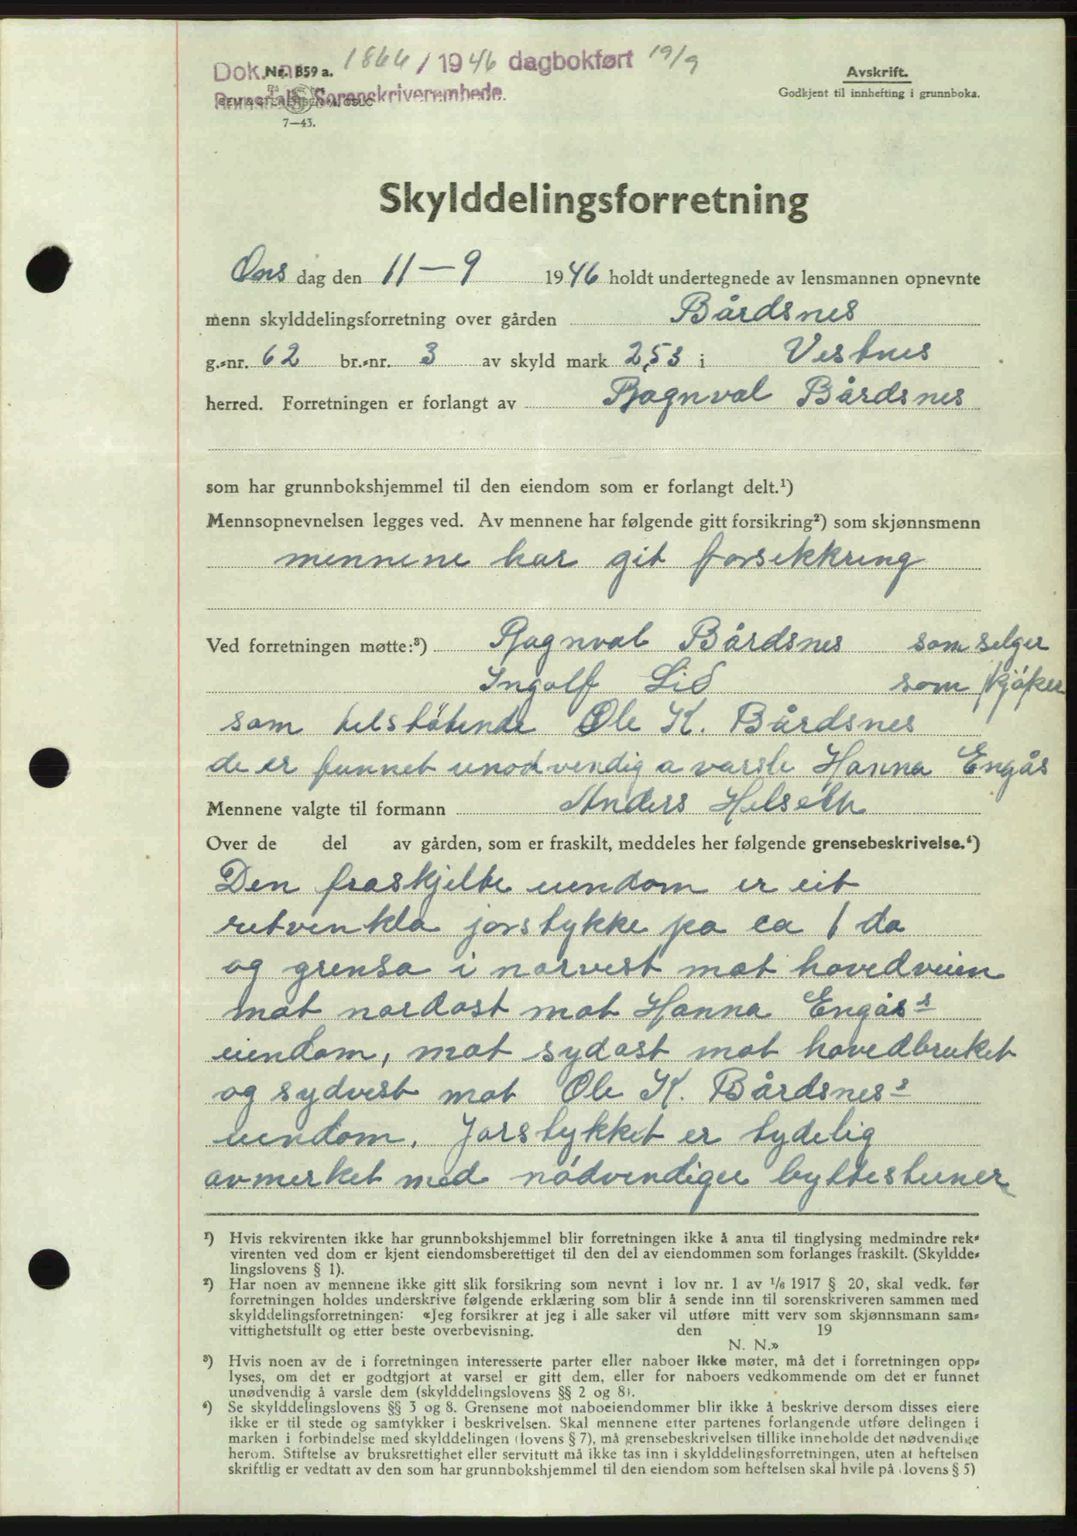 Dok. nr. 1866 / 1946 dagbokført 19/9
Nr. 859 a.
Romsdal Sorenskriverembede.
7—43.
Avskrift.
Godkjent til innhefting i grunnboka.
Skylddelingsforretning
Ons dag den 11 — 9 1946 holdt undertegnede av lensmannen opnevnte
menn skylddelingsforretning over gården Bårdsnes
g.-nr. 62 br.-nr. 3 av skyld mark 2,53 i Vestnes
herred. Forretningen er forlangt av Ragnval Bårdsnes
som har grunnbokshjemmel til den eiendom som er forlangt delt.¹)
Mennsopnevnelsen legges ved. Av mennene har følgende gitt forsikring²) som skjønnsmenn
mennene har git forsekkring
Ved forretningen møtte:³) Ragnval Bårdsnes som selger
Ingolf Lid som kjøper
som tilstøtende Ole K. Bårdsnes
de er funnet unødvendig a varsle Hanna Engås
Mennene valgte til formann Anders Helseth
Over de del av gården, som er fraskilt, meddeles her følgende grensebeskrivelse.⁴)
Den fraskjelte eiendom er eit
retvenkla jorstykke på ca 1 da
og grensa i norvest mot hovedveien
mot nordost mot Hanna Engås's
eiendom, mot sydost mot hovedbruket
og sydvest mot Ole K. Bårdsnes's
eiendom. Jorstykket er tydelig
avmerket med nødvendige byttesteiner
¹) Hvis rekvirenten ikke har grunnbokshjemmel blir forretningen ikke å anta til tinglysing medmindre rek-
virenten ved dom er kjent eiendomsberettiget til den del av eiendommen som forlanges fraskilt. (Skyldde-
lingslovens § 1).
²) Har noen av mennene ikke gitt slik forsikring som nevnt i lov nr. 1 av ¹/₆ 1917 § 20, skal vedk. før
forretningen holdes underskrive følgende erklæring som blir å sende inn til sorenskriveren sammen med
skylddelingsforretningen: «Jeg forsikrer at jeg i alle saker vil utføre mitt verv som skjønnsmann sam-
vittighetsfullt og etter beste overbevisning. den 19
N. N.»
³) Hvis noen av de i forretningen interesserte parter eller naboer ikke møter, må det i forretningen opp-
lyses, om det er godtgjort at varsel er gitt dem, eller for naboers vedkommende om det er funnet
unødvendig å varsle dem (skylddelingslovens §§ 2 og 8).
⁴) Se skylddelingslovens §§ 3 og 8. Grensene mot naboeiendommer blir ikke å beskrive dersom disses eiere
ikke er til stede og samtykker i beskrivelsen. Skal mennene etter partenes forlangende utføre delingen i
marken i forbindelse med skylddelingen (lovens § 7), må grensebeskrivelsen tillike inneholde det nødvendige
herom. Stiftelse av bruksrettighet eller servitutt må ikke tas inn i skylddelingsforretningen, uten at heftelsen
skriftlig er vedtatt av den som har grunnbokshjemmel til den eiendom som heftelsen skal hvile på (lovens § 5)